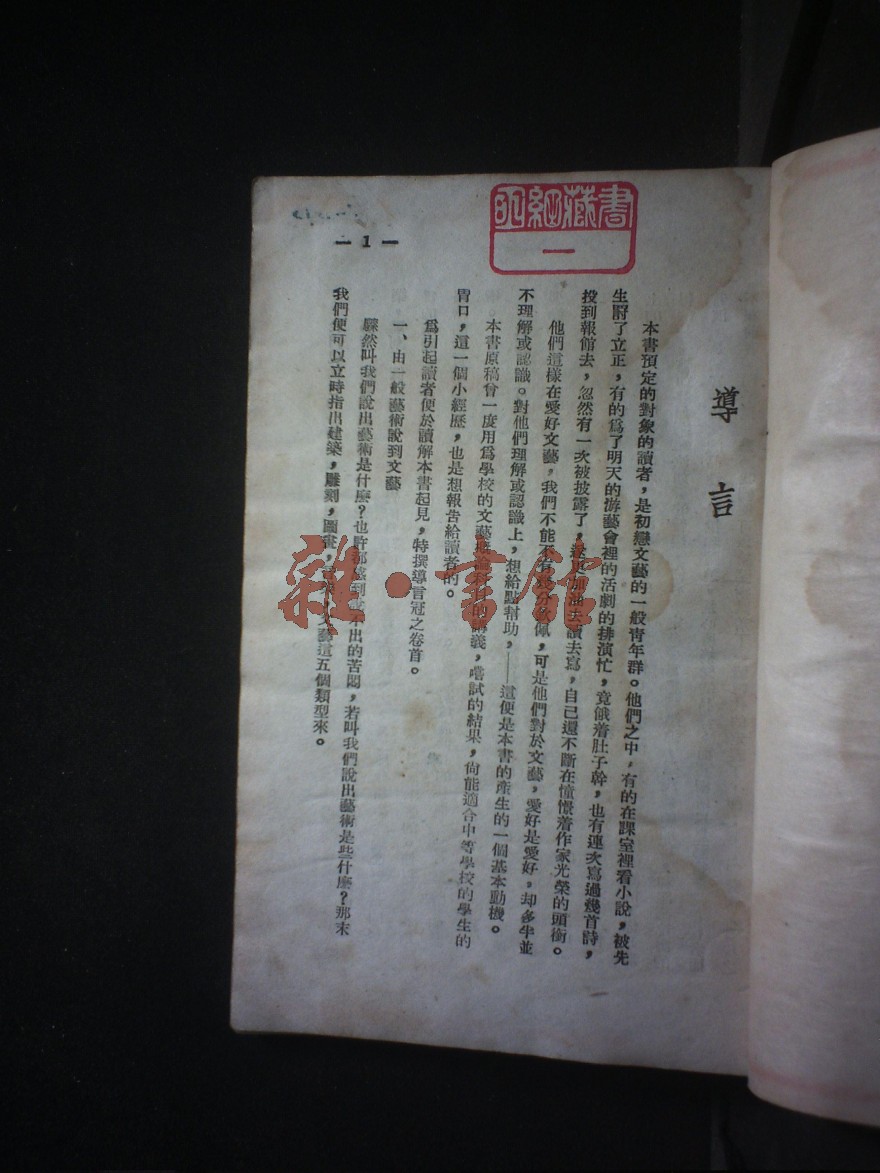 藏書
一
導言
本書預定的對象的讀者，是初戀文藝的一般青年群。他們之中，有的在課室裡看小說，被先
生罸了立正，有的爲了明天的游藝會裡的活劇的排演忙，竟餓着肚子幹，也有連次寫過幾首詩，
投到報館去，忽然有一次被披露了，更加油去讀去寫，自己還不斷在憧憬着作家光榮的頭銜。
他們這樣在愛好文藝，我們不能不有幾分欽佩，可是他們對於文藝，愛好是愛好，却多半並
不理解或認識。對他們理解或認識上，想給點幫助，——這便是本書的產生的一個基本動機。
本書原稿曾一度用爲學校的文藝概論科目的講義，嚐試的結果，尙能適合中等學校的學生的
胃口，這一個小經歷，也是想報告給讀者的。
爲引起讀者便於讀解本書起見，特撰導言冠之卷首。
一、由一般藝術說到文藝
驟然叫我們說出藝術是什麼？也許都感到說不出的苦悶，若叫我們說出藝術是些什麼？那末
我們便可以立時指出建築，雕刻，圖畫，音樂，文藝這五個類型來。
— 1 —
雜·書館